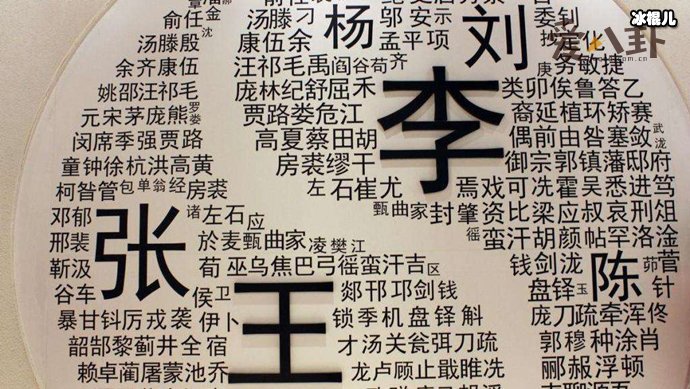 冰棍儿
爱八卦
俞任金
沈
汤滕殷
余齐康伍
姚邵汪毛
元宋茅庞熊
罗娄
闵席季强贾路
童钟徐杭洪高黄
柯昝管包单翁经房裘
邓郁
诸左石应
邢裴
於麦甄曲家凌樊江
靳汲
荀巫乌焦巴弓徭蛮汗吉区
谷车
侯卫
暴甘钭厉戎袭伊卜
韶郜黎蓟井全宿
赖卓蔺屠蒙池乔
汤滕刁
康伍余
汪祁毛禹
庞林纪舒屈禾
贾路娄危江
高夏蔡田胡
房裘缪干
左石崔尤
甄曲家封肇
杨
邬安示
孟平项
阎谷荀齐
刘
李
张
王
陈
委钊
庚务敏捷
类卯俟鲁答乙
裔延植环矫赛
偶前由昝塞敛
武
泷
御宗郭镇藩邸府
焉戏可冼霍吴悉进笃
资比梁应叔哀刑俎
徭蛮汗胡颜帖罕洛淦
钱剑泷茆菅
盘铎玉针
郯邗邛剑钱
锁季机盘铎斛
才汤关瓮弭刀疏
龙卢顾止戢睢冼
庞刀疏牵浑佟
郭穆种涂肖
郦郝浮顿